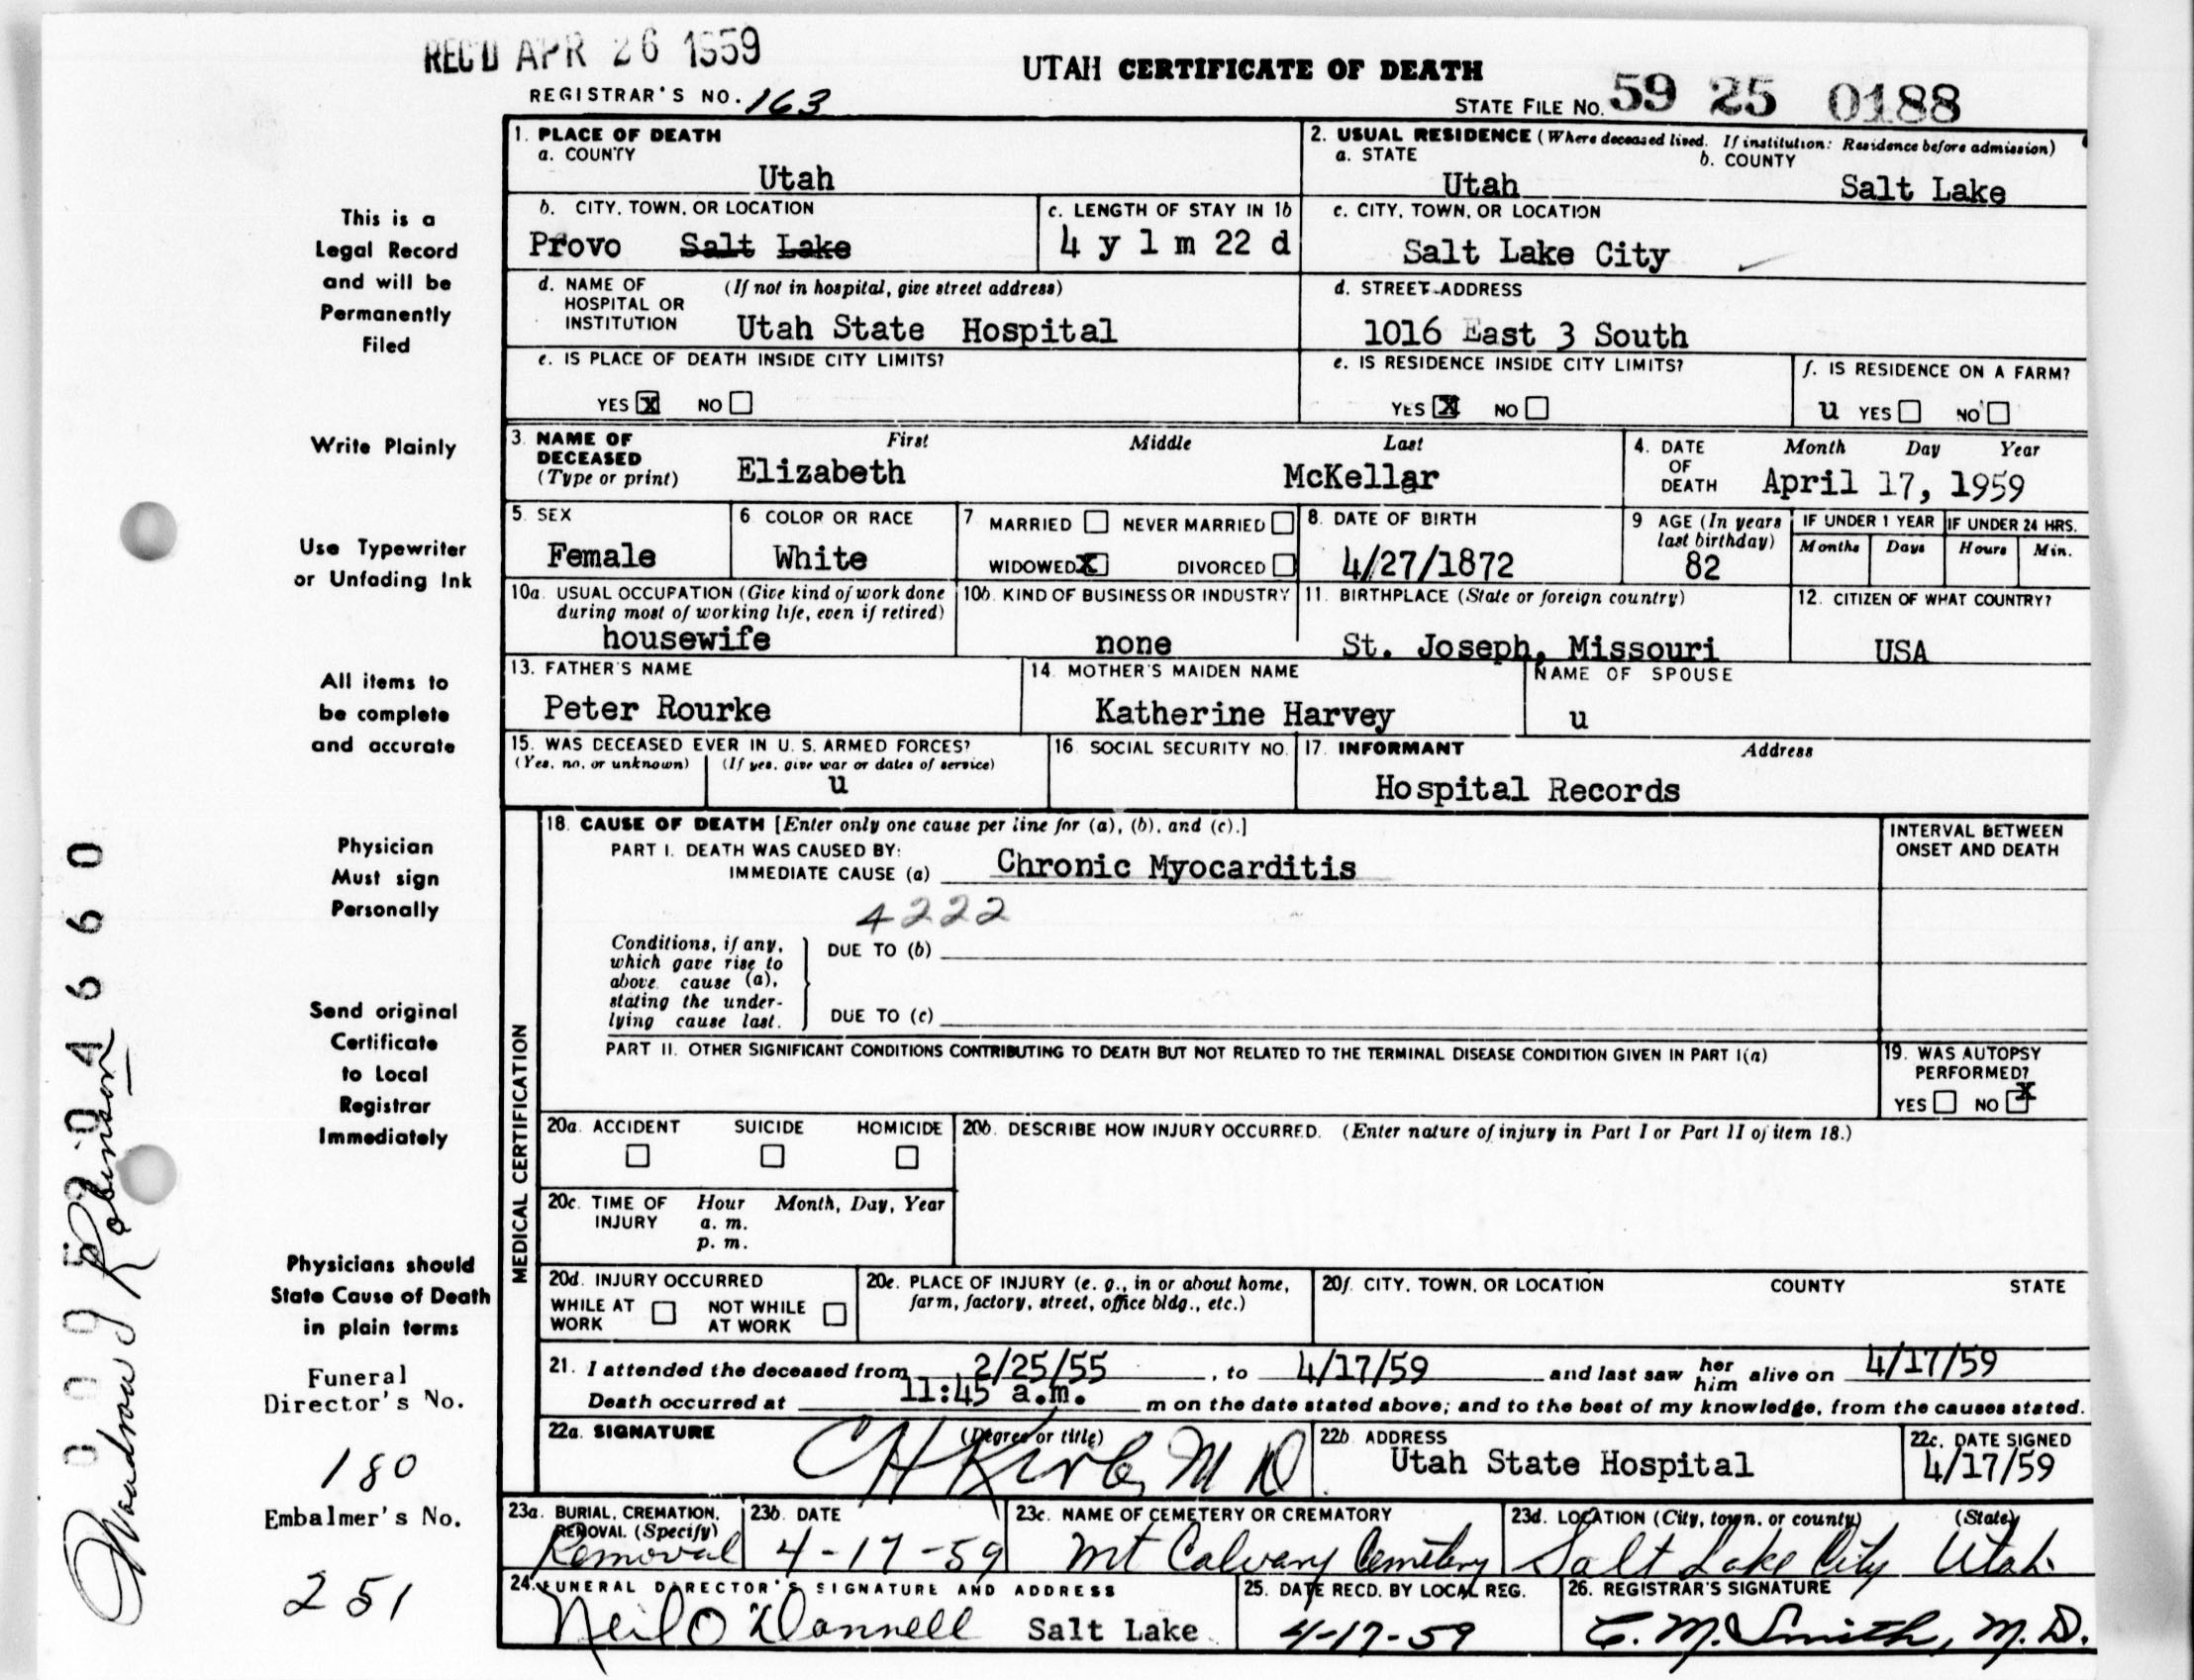 REC'D APR 26 1959
UTAH CERTIFICATE OF DEATH
REGISTRAR'S NO. 163
STATE FILE NO. 59 25 0188
1. PLACE OF DEATH
a. COUNTY
Utah
2. USUAL RESIDENCE (Where deceased lived. If institution: Residence before admission)
a. STATE
b. COUNTY
Utah
Salt Lake
b. CITY, TOWN, OR LOCATION
Provo Salt Lake
c. LENGTH OF STAY IN 1b
4 y 1 m 22 d
c. CITY, TOWN, OR LOCATION
Salt Lake City
d. NAME OF HOSPITAL OR INSTITUTION
(If not in hospital, give street address)
Utah State Hospital
d. STREET ADDRESS
1016 East 3 South
e. IS PLACE OF DEATH INSIDE CITY LIMITS?
YES X NO
e. IS RESIDENCE INSIDE CITY LIMITS?
YES X NO
f. IS RESIDENCE ON A FARM?
u YES NO
3. NAME OF DECEASED
(Type or print)
First Middle Last
Elizabeth McKellar
4. DATE OF DEATH
Month Day Year
April 17, 1959
5. SEX
Female
6 COLOR OR RACE
White
7 MARRIED NEVER MARRIED
WIDOWED X DIVORCED
8. DATE OF BIRTH
4/27/1872
9 AGE (In years last birthday)
82
IF UNDER 1 YEAR
Months Days
IF UNDER 24 HRS.
Hours Min.
10a. USUAL OCCUPATION (Give kind of work done
during most of working life, even if retired)
housewife
10b. KIND OF BUSINESS OR INDUSTRY
none
11. BIRTHPLACE (State or foreign country)
St. Joseph, Missouri
12. CITIZEN OF WHAT COUNTRY?
USA
13. FATHER'S NAME
Peter Rourke
14. MOTHER'S MAIDEN NAME
Katherine Harvey
NAME OF SPOUSE
u
15. WAS DECEASED EVER IN U. S. ARMED FORCES?
(Yes, no, or unknown) (If yes, give war or dates of service)
u
16. SOCIAL SECURITY NO.
17. INFORMANT Address
Hospital Records
MEDICAL CERTIFICATION
18. CAUSE OF DEATH [Enter only one cause per line for (a), (b), and (c).]
INTERVAL BETWEEN
ONSET AND DEATH
PART I. DEATH WAS CAUSED BY:
IMMEDIATE CAUSE (a) Chronic Myocarditis
4222
Conditions, if any,
which gave rise to
above cause (a),
stating the under-
lying cause last.
DUE TO (b)
DUE TO (c)
PART II. OTHER SIGNIFICANT CONDITIONS CONTRIBUTING TO DEATH BUT NOT RELATED TO THE TERMINAL DISEASE CONDITION GIVEN IN PART I(a)
19. WAS AUTOPSY
PERFORMED?
YES NO X
20a. ACCIDENT SUICIDE HOMICIDE
20b. DESCRIBE HOW INJURY OCCURRED. (Enter nature of injury in Part I or Part II of item 18.)
20c. TIME OF INJURY
Hour Month, Day, Year
a. m.
p. m.
20d. INJURY OCCURRED
WHILE AT WORK NOT WHILE AT WORK
20e. PLACE OF INJURY (e. g., in or about home,
farm, factory, street, office bldg., etc.)
20f. CITY, TOWN, OR LOCATION COUNTY STATE
21. I attended the deceased from 2/25/55, to 4/17/59 and last saw her him alive on 4/17/59
Death occurred at 11:45 a.m. m on the date stated above; and to the best of my knowledge, from the causes stated.
22a. SIGNATURE (Degree or title)
C H Kirby M D
22b. ADDRESS
Utah State Hospital
22c. DATE SIGNED
4/17/59
23a. BURIAL, CREMATION,
REMOVAL (Specify)
Removal
23b. DATE
4-17-59
23c. NAME OF CEMETERY OR CREMATORY
Mt Calvary Cemetery
23d. LOCATION (City, town, or county) (State)
Salt Lake City Utah
24. FUNERAL DIRECTOR'S SIGNATURE AND ADDRESS
Neil O'Donnell Salt Lake
25. DATE RECD. BY LOCAL REG.
4-17-59
26. REGISTRAR'S SIGNATURE
C. M. Smith, M.D.
This is a
Legal Record
and will be
Permanently
Filed
Write Plainly
Use Typewriter
or Unfading Ink
All items to
be complete
and accurate
Physician
Must sign
Personally
Send original
Certificate
to Local
Registrar
Immediately
Physicians should
State Cause of Death
in plain terms
Funeral
Director's No.
180
Embalmer's No.
251
Woodrow J Robinson